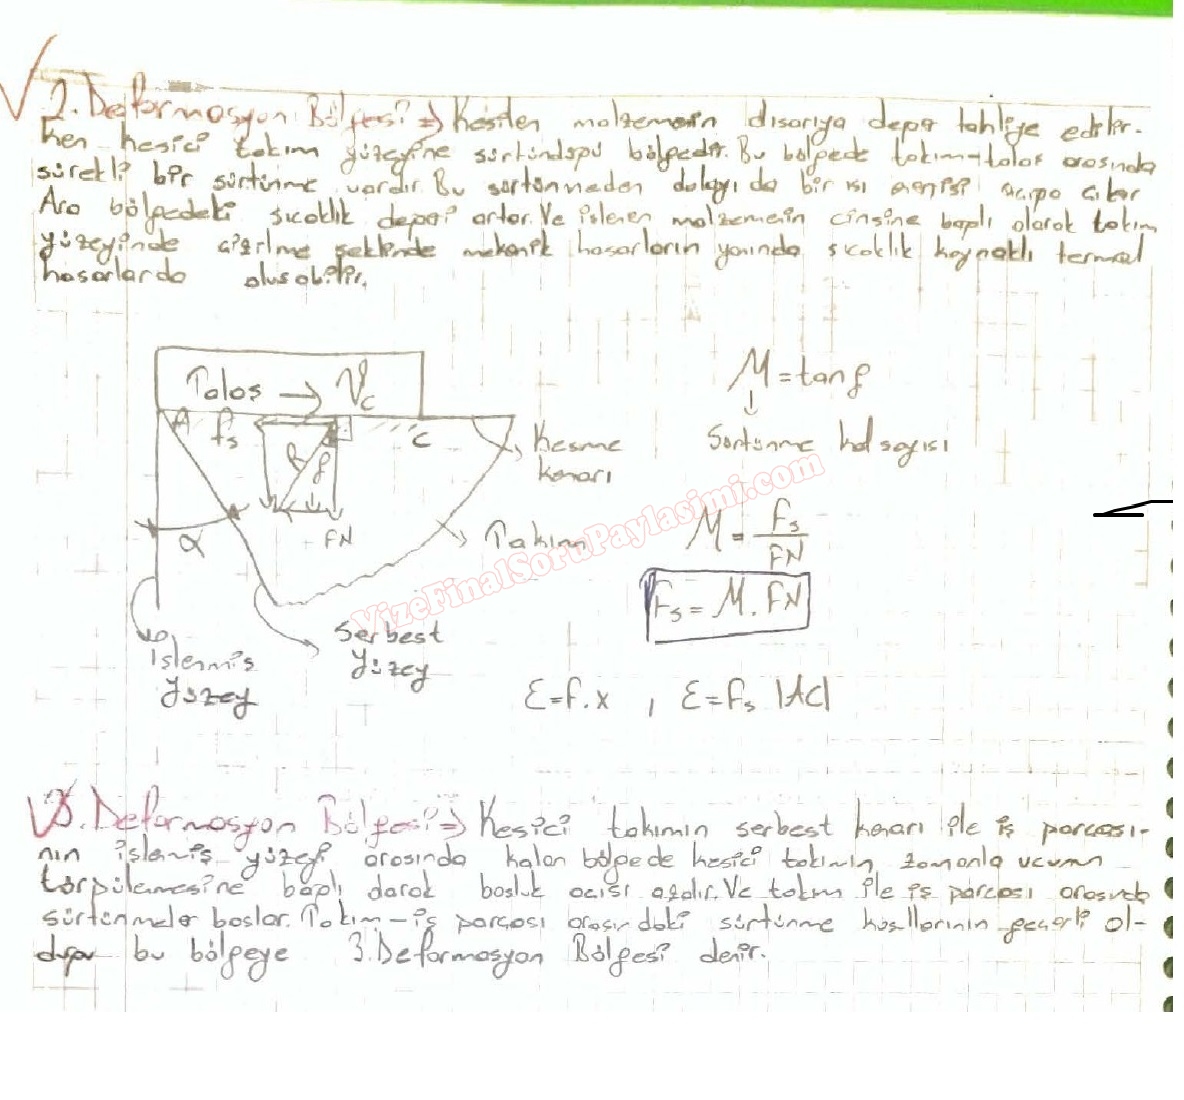 2. Deformasyon Bölgesi => Kesilen malzemenin dışarıya doğru tahliye edilir-
ken kesici takım yüzeyine sürtündüğü bölgedir. Bu bölgede takım-talaş arasında
sürekli bir sürtünme vardır. Bu sürtünmeden dolayı da bir ısı enerjisi açığa çıkar
Ara bölgedeki sıcaklık değeri artar. Ve işlenen malzemenin cinsine bağlı olarak takım
yüzeyinde çizilme şeklinde mekanik hasarların yanında sıcaklık kaynaklı termal
hasarlarda oluşabilir.
Talaş → Vc
A
fs
C
R
ρ
FN
α
Kesme
kenarı
Takım
Serbest
yüzey
işlenmiş
yüzey
M = tanρ
↓
Sürtünme katsayısı
M = Fs / FN
Fs = M . FN
Ɛ = f . x , Ɛ = fs |AC|
VizeFinalSoruPaylasimi.com
3. Deformasyon Bölgesi => Kesici takımın serbest kenarı ile iş parçası-
nın işlenmiş yüzeyi arasında kalan bölgede kesici takımın, zamanla ucunun
törpülenmesine bağlı olarak boşluk açısı azalır. Ve takım ile iş parçası arasında
sürtünmeler başlar. Takım-iş parçası arasındaki sürtünme koşullarının geçerli ol-
duğu bu bölgeye 3. Deformasyon Bölgesi denir.